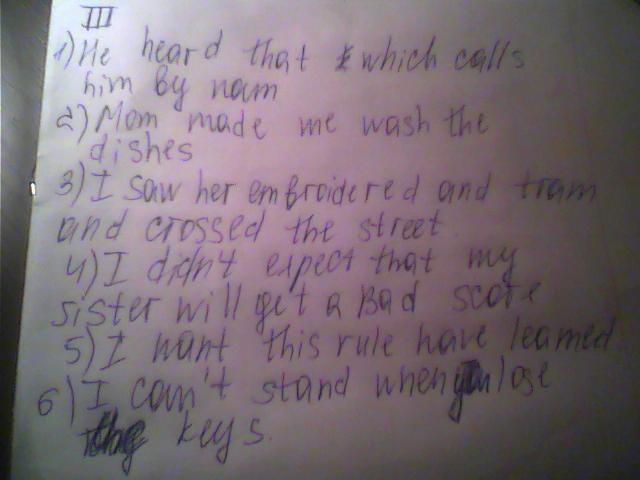 III
1) He heard that which calls
him by nam
2) Mom made me wash the
dishes
3) I saw her embroidered and tram
and crossed the street.
4) I didn't expect that my
sister will get a Bad score
5) I want this rule have learned
6) I can't stand when you lose
the keys.